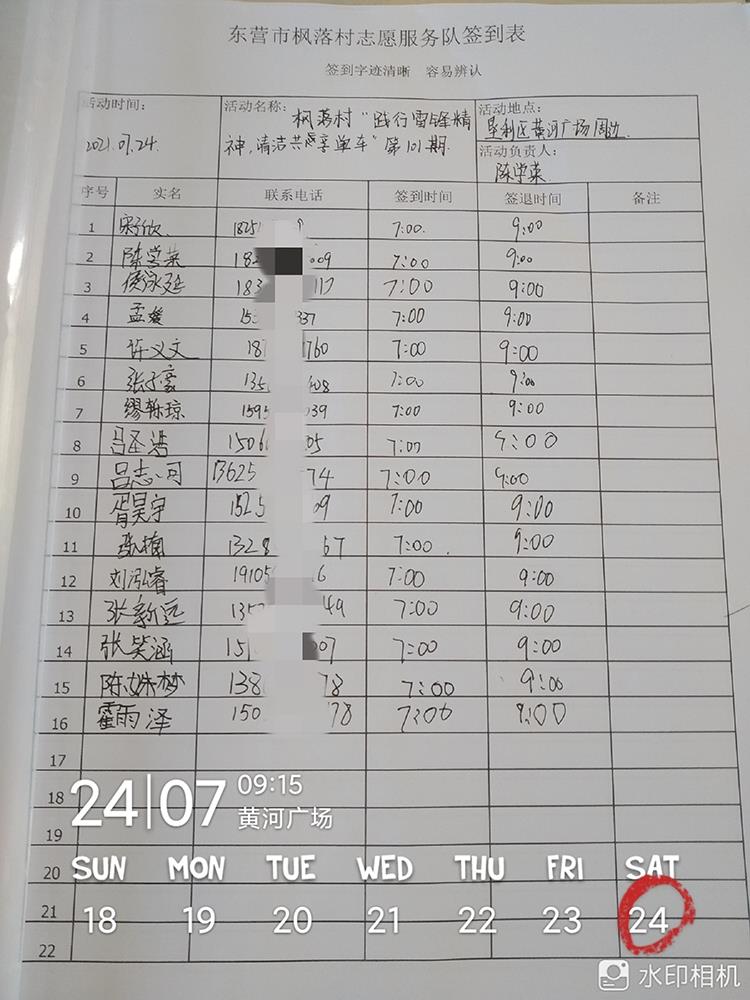 东营市枫落村志愿服务队签到表
签到字迹清晰 容易辨认
活动时间: 2021.07.24.
活动名称: 枫落村“践行雷锋精
神,清洁共享单车”第101期.
活动地点:
垦利区黄河广场周边.
活动负责人:
陈学荣
序号 实名 联系电话 签到时间 签退时间 备注
1 宋欣 1825 9 7:00. 9:00
2 陈学荣 18 009 7:00 9:00
3 侯泳延 183 117 7:00 9:00
4 孟媛 15 337 7:00 9:00
5 许义文 18 760 7:00 9:00
6 张子豪 135 608 7:00 9:00
7 缪轶琼 1595 039 7:00 9:00
8 吕圣浩 1506 05 7:00 9:00
9 吕志一可 13625 74 7:00 9:00
10 胥昊宇 1525 09 7:00 9:00
11 1328 67 7:00. 9:00
12 刘泓睿 19105 6 7:00 9:00
13 张新远 135 49 7:00 9:00
14 张笑涵 151 007 7:00 9:00
15 陈姝梦 138 78 7:00 9:00
16 霍雨泽 150 78 7:00 9:00
17
18
19
20
21
22
24|07 09:15
黄河广场
SUN MON TUE WED THU FRI SAT
18 19 20 21 22 23 24
水印相机